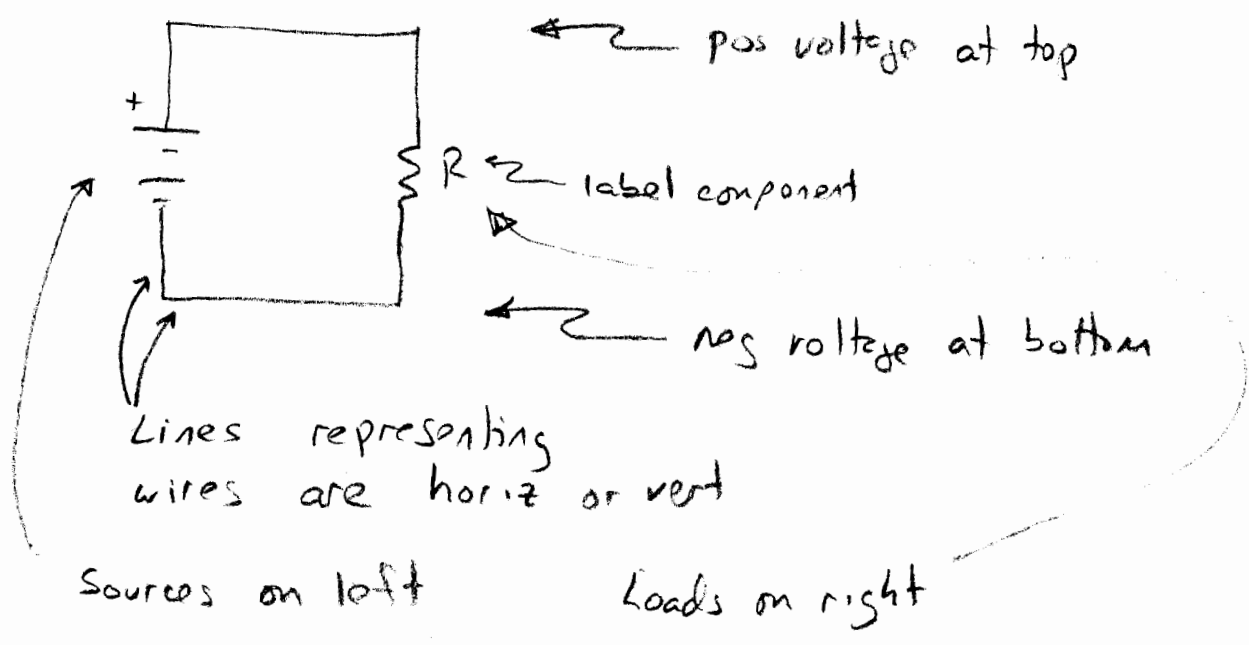 pos voltage at top
+
R
label component
neg voltage at bottom
Lines representing
wires are horiz or vert
Sources on left
Loads on right